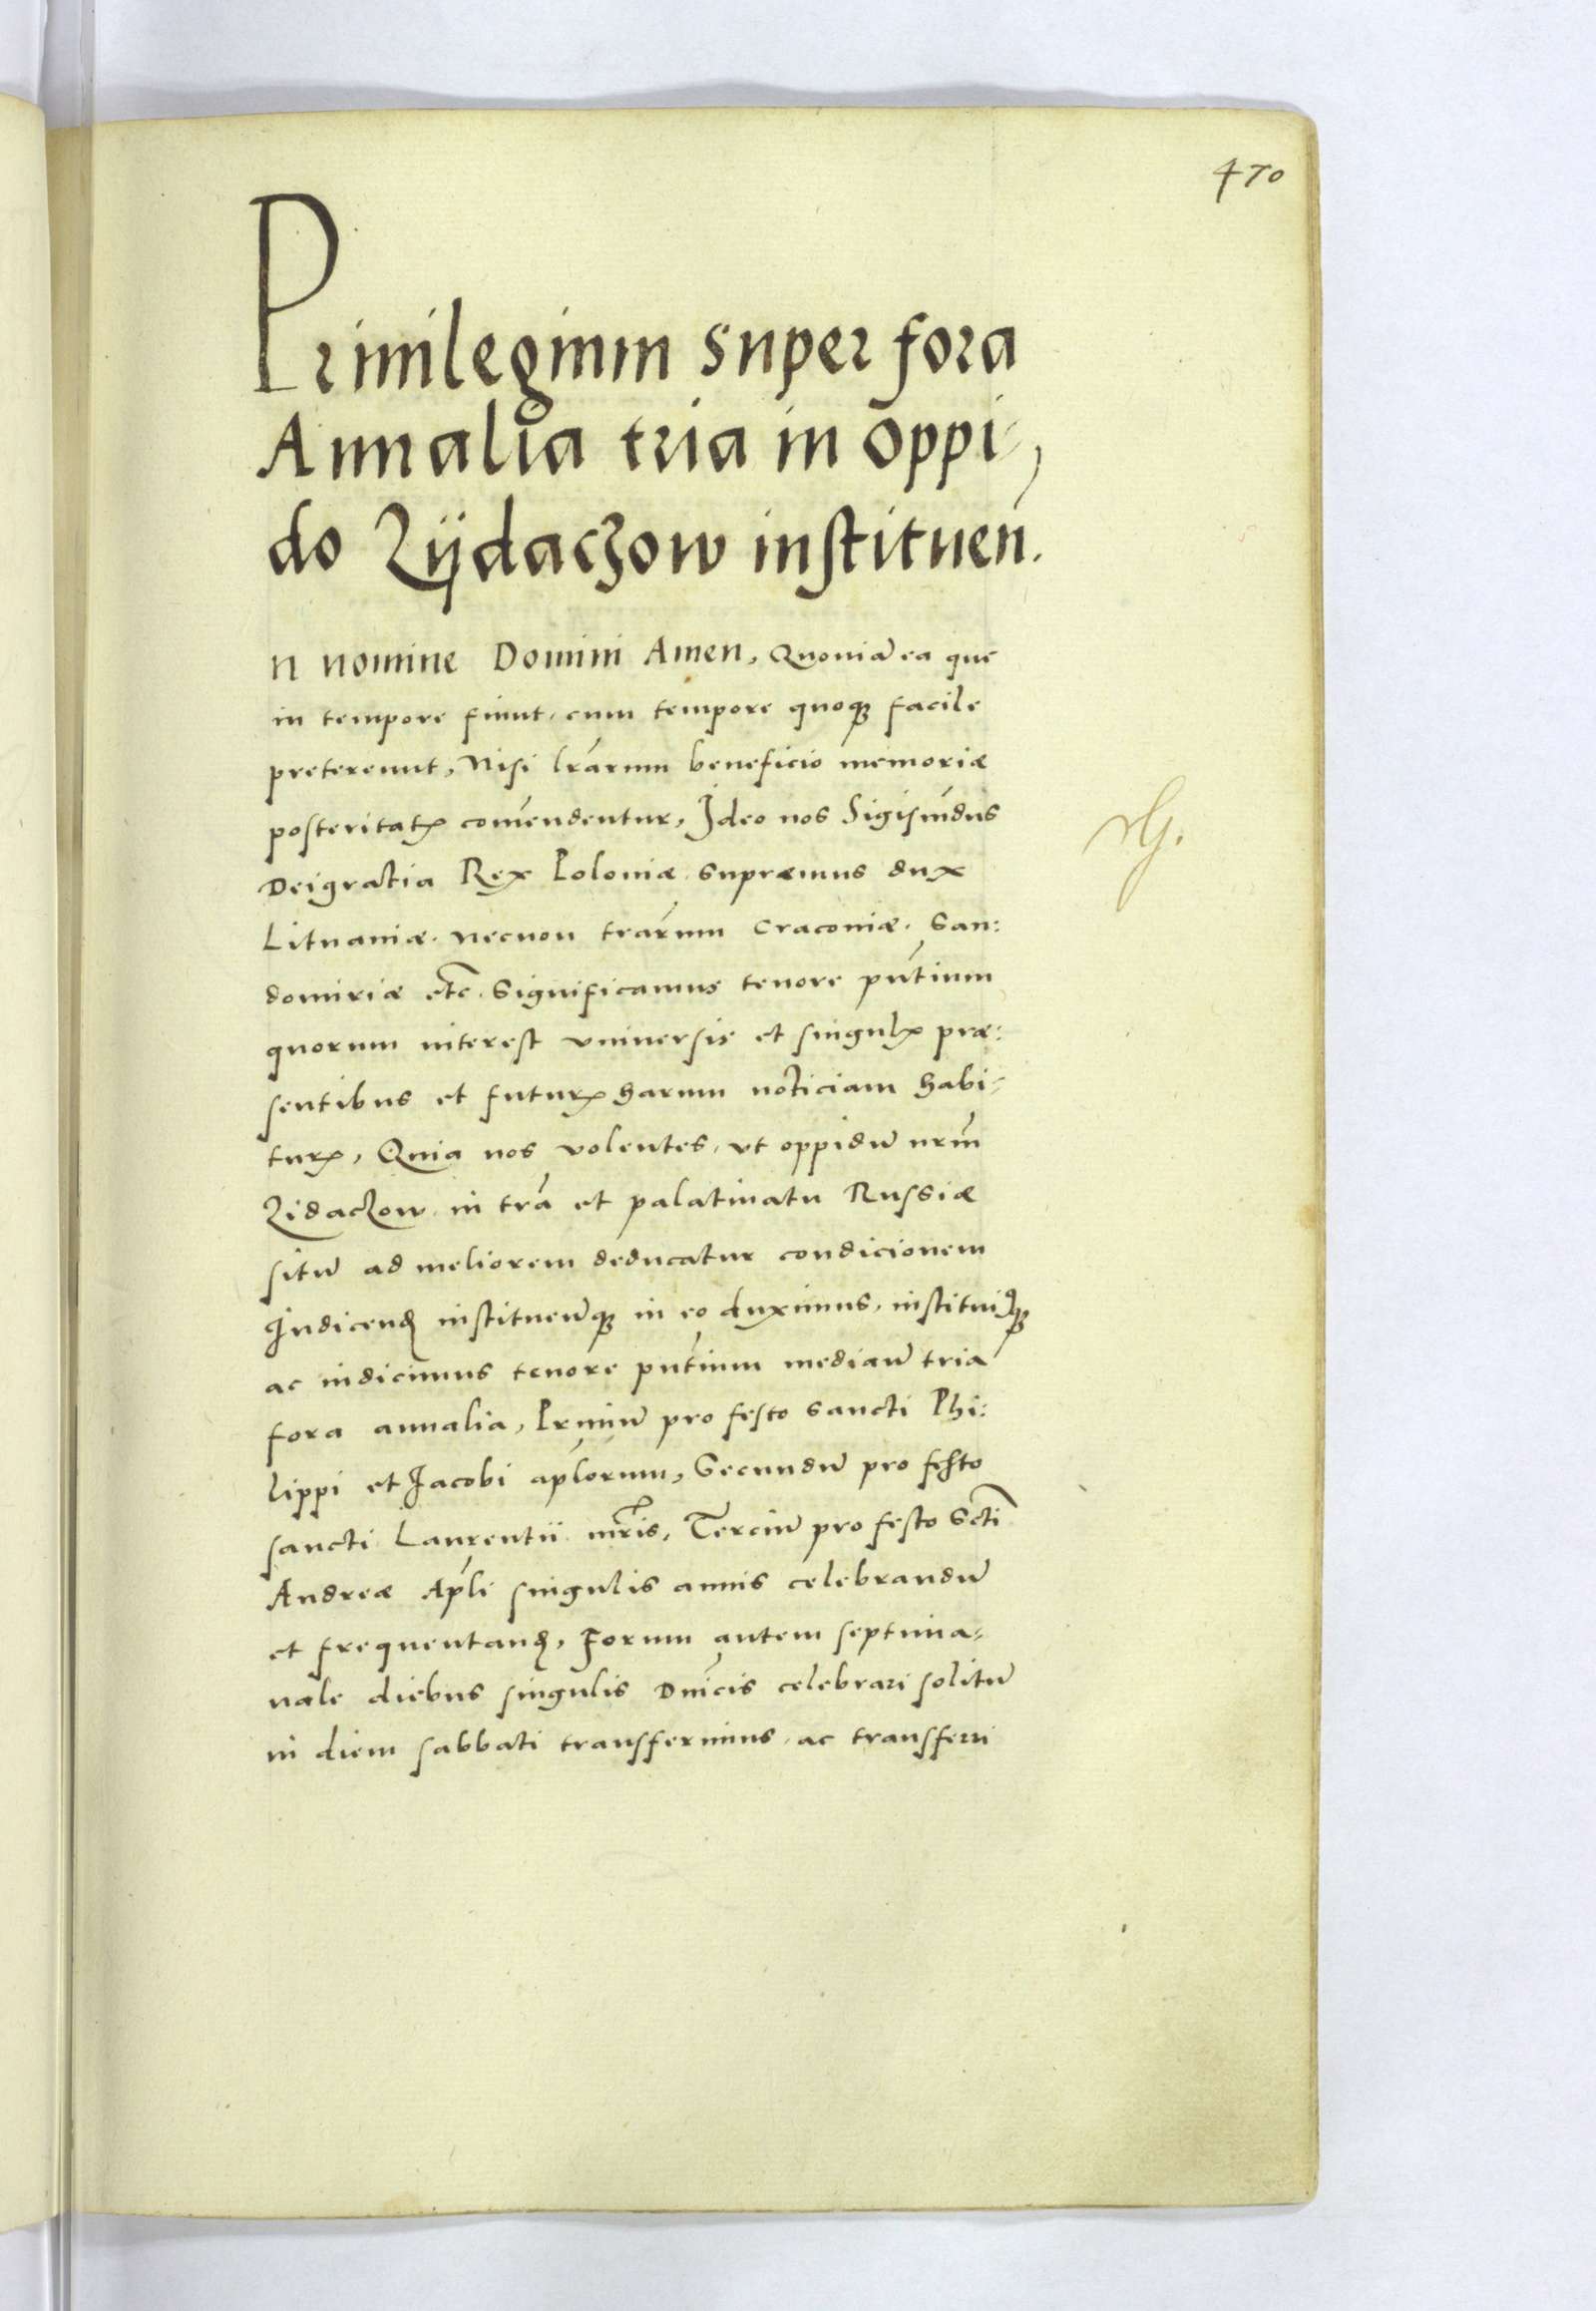 470
Privilegium super fora
Annalia tria in oppi-
do Zÿdaczow instituen̄.
n nomine Domini Amen, Quoniā ea que
in tempore fiunt, cum tempore quoqꝫ facile
pretereunt, Nisi lrārum beneficio memoriæ
posteritatꝭ com̄endentur, Ideo nos Sigismūdus
Deigratia Rex Poloniæ supræmus dux
Lituaniæ. necnon trārum Cracoviæ. San:
domiriæ etc̄. Significamus tenore pn̄tium
quorum interest universis et singulꝭ præ:
sentibus et futurꝭ harum noticiam habi-
turꝭ, Quia nos volentes, ut oppidū nrm̄
Zidaczow in trā et palatinatu Russiæ
situ̅ ad meliorem deducatur condicionem
Indicendꝭ instituendūqꝫ in eo duximus, instituimꝰqꝫ
ac indicimus tenore pn̄tium mediaū tria
fora annalia, Primū pro festo sancti Phi:
lippi et Jacobi aplōrum, Secundū pro festo
sancti Laurentii mr̄is, Terciū pro festo Scti̅
Andreæ Apl̄i singulis annis celebrandū
et frequentandꝭ, Forum autem septima-
nale diebus singulis Dn̄icis celebrari solitū
in diem sabbati transferimus, ac transferri